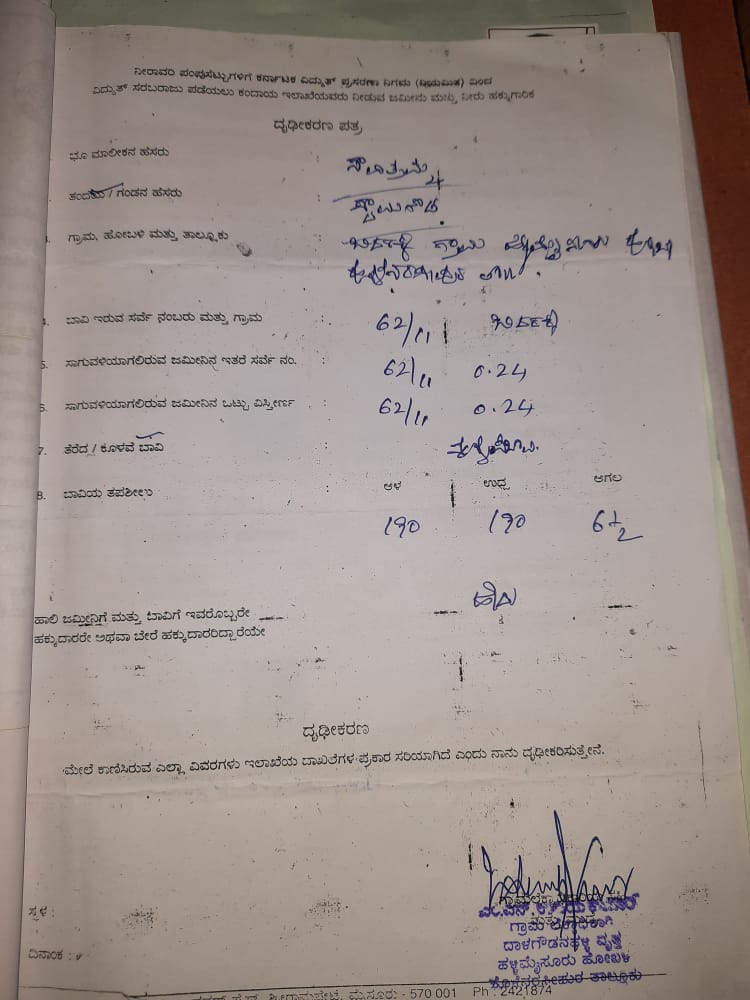 ನೀರಾವರಿ ಪಂಪುಸೆಟ್ಟುಗಳಿಗೆ ಕರ್ನಾಟಕ ವಿದ್ಯುತ್ ಪ್ರಸರಣಾ ನಿಗಮ (ನಿಯಮಿತ) ದಿಂದ
ವಿದ್ಯುತ್ ಸರಬರಾಜು ಪಡೆಯಲು ಕಂದಾಯ ಇಲಾಖೆಯವರು ನೀಡುವ ಜಮೀನು ಮತ್ತು ನೀರು ಹಕ್ಕುಗಾರಿಕೆ
ದೃಢೀಕರಣ ಪತ್ರ
ಭೂ ಮಾಲೀಕನ ಹೆಸರು :
ತಂದೆಯ / ಗಂಡನ ಹೆಸರು :
ಗ್ರಾಮ, ಹೋಬಳಿ ಮತ್ತು ತಾಲ್ಲೂಕು : ಗ್ರಾಮ
ಬಾವಿ ಇರುವ ಸರ್ವೆ ನಂಬರು ಮತ್ತು ಗ್ರಾಮ : 62/11
5. ಸಾಗುವಳಿಯಾಗಲಿರುವ ಜಮೀನಿನ ಇತರೆ ಸರ್ವೆ ನಂ. : 62/11 0.24
6. ಸಾಗುವಳಿಯಾಗಲಿರುವ ಜಮೀನಿನ ಒಟ್ಟು ವಿಸ್ತೀರ್ಣ : 62/11 0.24
7. ತೆರೆದ / ಕೊಳವೆ ಬಾವಿ :
8. ಬಾವಿಯ ತಪಶೀಲು : ಆಳ ಉದ್ದ ಅಗಲ
190 190 6½
ಹಾಲಿ ಜಮೀನಿಗೆ ಮತ್ತು ಬಾವಿಗೆ ಇವರೊಬ್ಬರೇ
ಹಕ್ಕುದಾರರೇ ಅಥವಾ ಬೇರೆ ಹಕ್ಕುದಾರರಿದ್ದಾರೆಯೇ
ಹೌದು
ದೃಢೀಕರಣ
ಮೇಲೆ ಕಾಣಿಸಿರುವ ಎಲ್ಲಾ ವಿವರಗಳು ಇಲಾಖೆಯ ದಾಖಲೆಗಳ ಪ್ರಕಾರ ಸರಿಯಾಗಿದೆ ಎಂದು ನಾನು ದೃಢೀಕರಿಸುತ್ತೇನೆ.
ಸ್ಥಳ :
ದಿನಾಂಕ :
ಗ್ರಾಮ ಲೆಕ್ಕಾಧಿಕಾರಿ
ದಾಳಗೌಡನಹಳ್ಳಿ ವೃತ್ತ
ಹಳ್ಳಿಮೈಸೂರು ಹೋಬಳಿ
ಹೊಳೆನರಸೀಪುರ ತಾಲ್ಲೂಕು
ಮೈಸೂರು - 570 001 Ph : 2421874